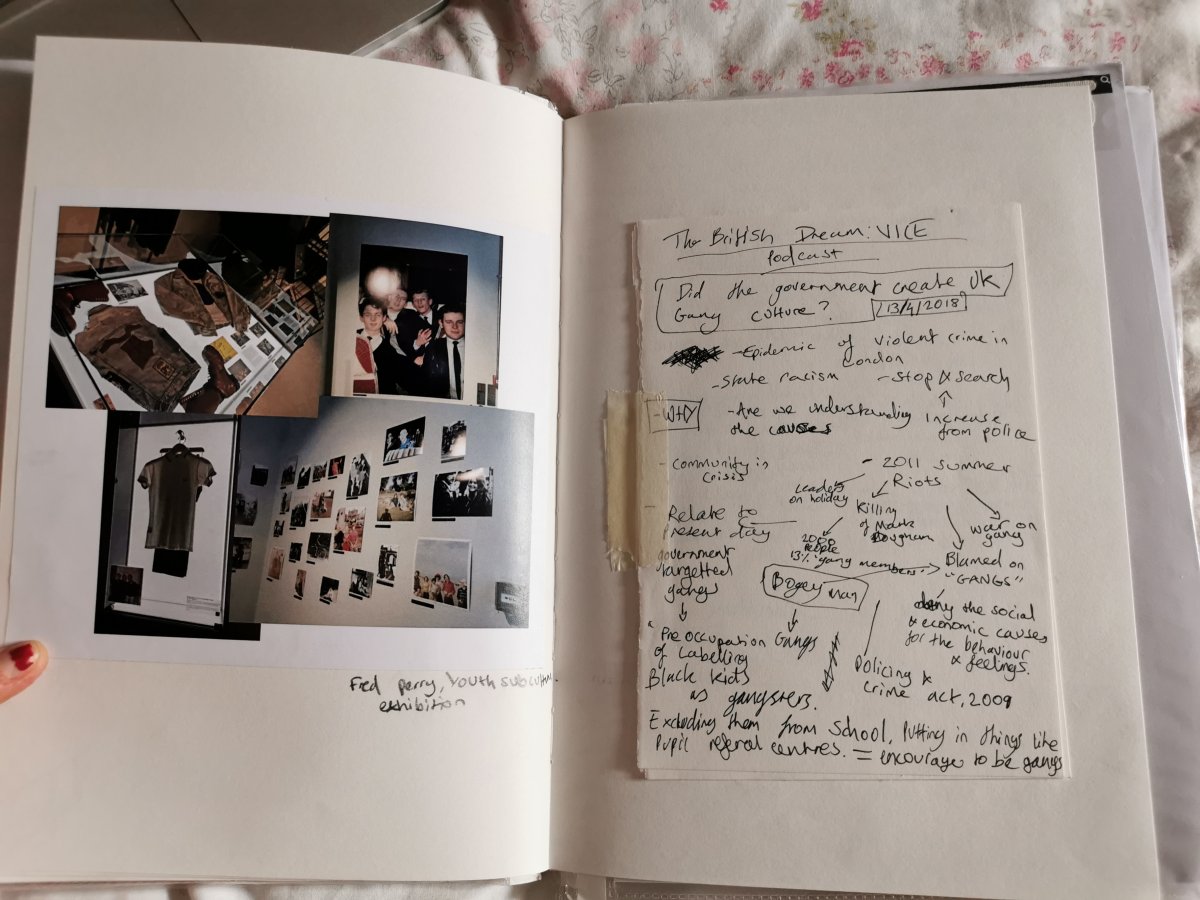 Fred perry, Youth subculture.
exhibition
The British Dream: VICE
Podcast
Did the government create UK
Gang culture?
13/4/2018
- Epidemic of violent crime in
London
- State racism
- Stop & search
increase
from police
- WHY
- Are we understanding
the causes
- Community in
Crisis
- 2011 Summer
Riots
Leaders
on holiday
Killing
of Mark
war on
gang
- Relate to
present day
2000
people
13% gang members.
Blamed on
"GANGS"
government
targetted
gangs
Bogey man
deny the social
& economic causes
for the behaviour
& feelings.
"Pre occupation
of Labelling
Black kids
as gangsters.
Gangs
Policing &
Crime act, 2009
Excluding them from School, Putting in things like
Pupil referal centres. = encourage to be gangs